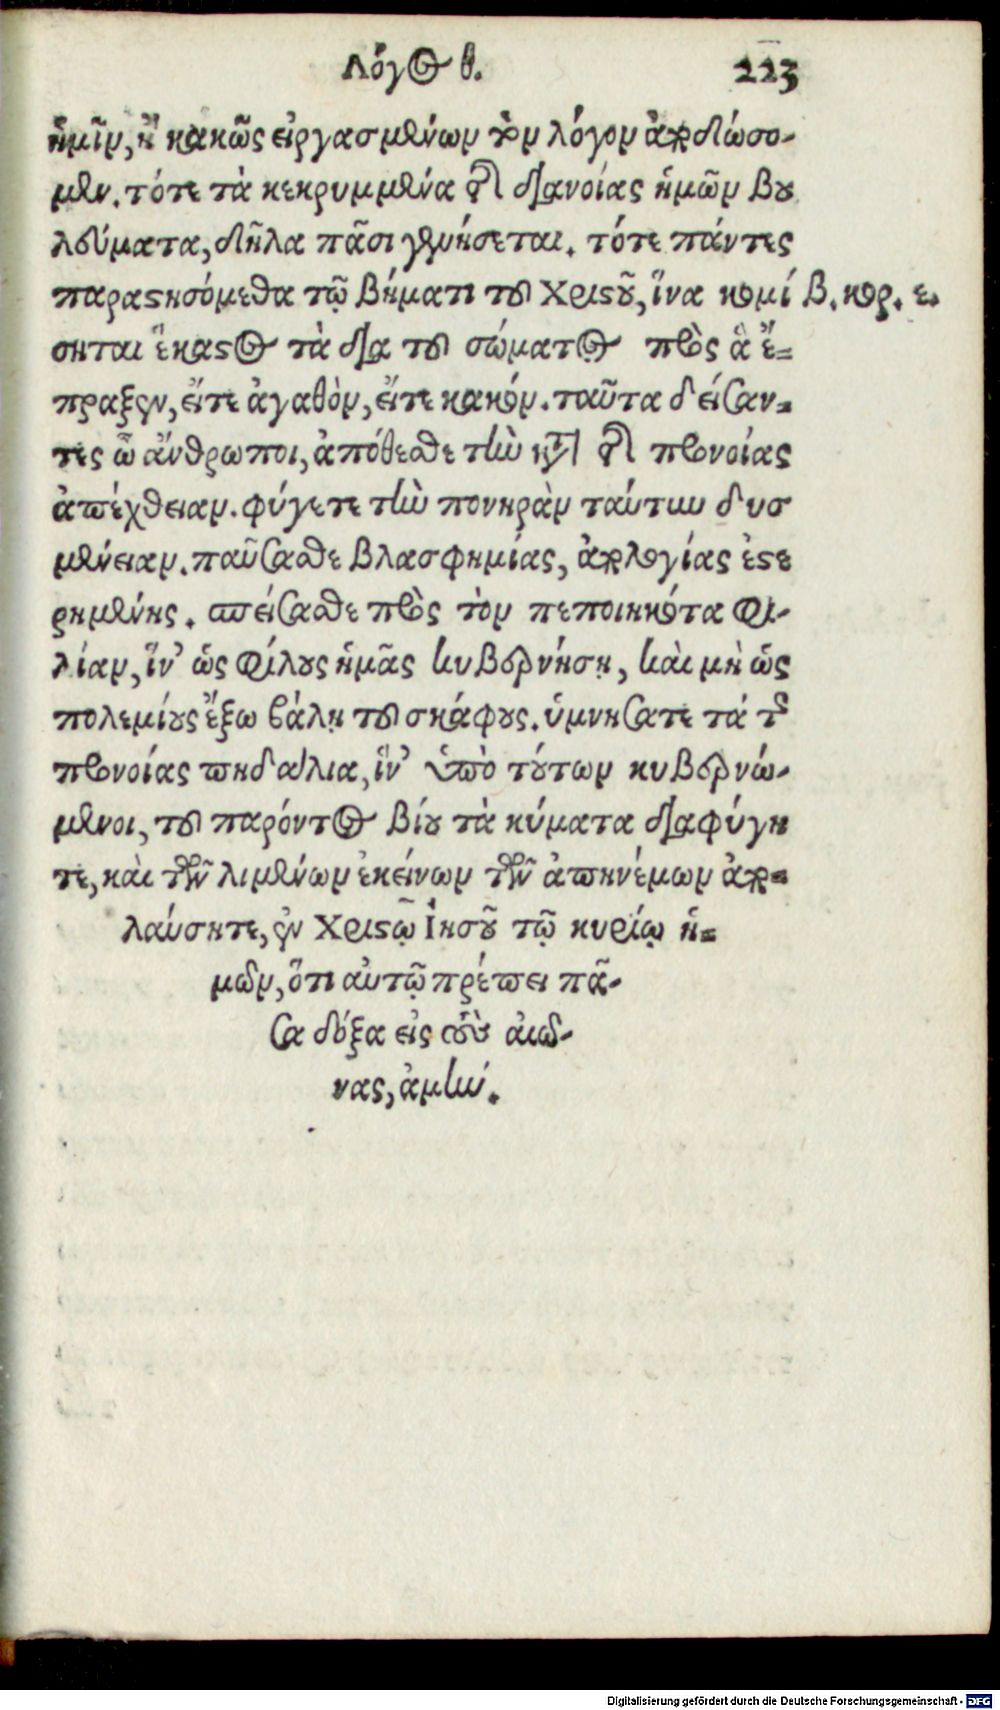 Λόγος θ. 223
ἡμῖν, ἢ κακῶς εἰργασμένων τὸν λόγον ἀποδώσο-
μεν. τότε τὰ κεκρυμμένα τῆς διανοίας ἡμῶν βου
λεύματα, δῆλα πᾶσι γενήσεται. τότε πάντες
παραστησόμεθα τῷ βήματι τοῦ Χριστοῦ, ἵνα κομί
β. κορ. ε.
σηται ἕκαστος τὰ διὰ τοῦ σώματος πρὸς ἃ ἔ-
πραξεν, εἴτε ἀγαθὸν, εἴτε κακόν. ταῦτα δείσαν-
τες ὦ ἄνθρωποι, ἀπόθεσθε τὴν κατὰ τῆς προνοίας
ἀπέχθειαν. φύγετε τὴν πονηρὰν ταύτην δυσ
μένειαν. παύσασθε βλασφημίας, ἀπολογίας ἐστε
ρημένης. σπείσασθε πρὸς τὸν πεποιηκότα φι-
λίαν, ἵν' ὡς φίλους ἡμᾶς κυβερνήσῃ, καὶ μὴ ὡς
πολεμίους ἔξω βάλῃ τοῦ σκάφους. ὑμνήσατε τὰ τῆς
προνοίας πηδάλια, ἵν' ὑπὸ τούτων κυβερνώ-
μενοι, τοῦ παρόντος βίου τὰ κύματα διαφύγη
τε, καὶ τῶν λιμένων ἐκείνων τῶν ἀπηνέμων ἀπο-
λαύσητε, ἐν Χριστῷ Ἰησοῦ τῷ κυρίῳ ἡ-
μῶν, ὅτι αὐτῷ πρέπει πᾶ-
σα δόξα εἰς τοὺς αἰῶ-
νας, ἀμήν.
Digitalisierung gefördert durch die Deutsche Forschungsgemeinschaft - DFG